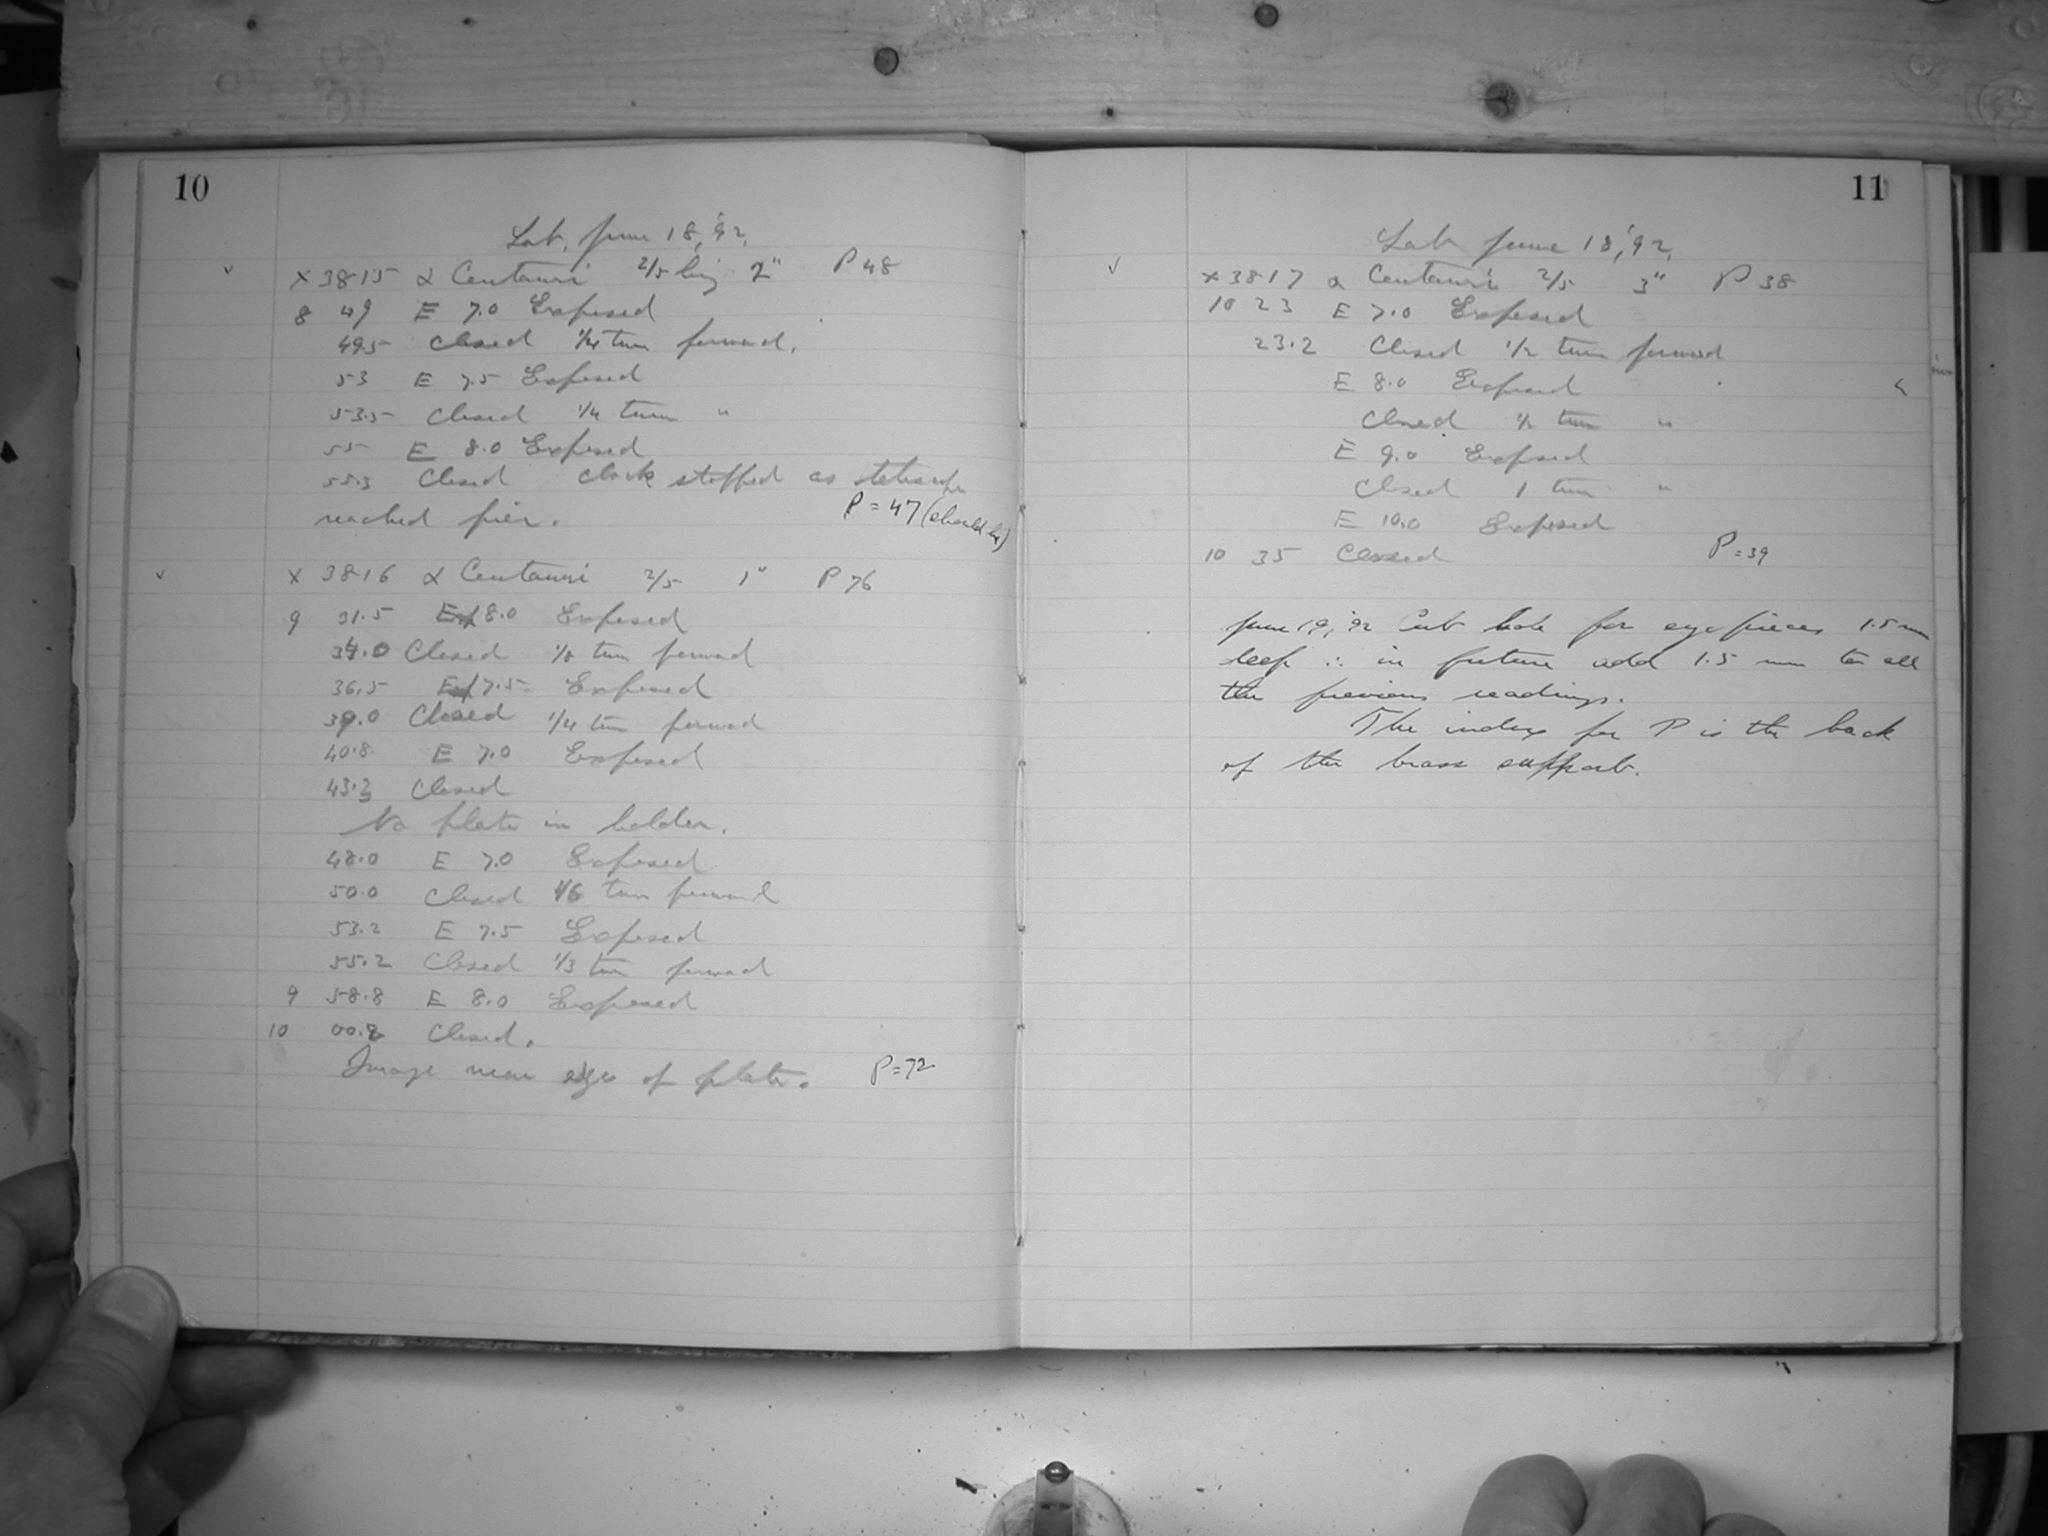 10
Sat. June 18, '92.
✓ X 3815 α Centauri 2/5 2" P 48
8 49 E 7.0 Exposed
49.5 Closed 1/4 turn forward.
53 E 7.5 Exposed
53.5 Closed 1/4 turn "
55 E 8.0 Exposed
55.3 Closed Clock stopped as telescope
reached pier. P = 47 (should be)
✓ X 3816 α Centauri 2/5 1" P 76
9 31.5 E 8.0 Exposed
34.0 Closed 1/8 turn forward
36.5 E 7.5 Exposed
39.0 Closed 1/4 turn forward
40.8 E 7.0 Exposed
43.3 Closed
No plate in holder.
48.0 E 7.0 Exposed
50.0 Closed 1/6 turn forward
53.2 E 7.5 Exposed
55.2 Closed 1/3 turn forward
9 58.8 E 8.0 Exposed
10 00.8 Closed.
Image near edge of plate. P = 72
11
Sat June 18, '92.
✓ X 3817 α Centauri 2/5 3" P 38
10 23 E 7.0 Exposed
23.2 Closed 1/2 turn forward
E 8.0 Exposed
Closed 1/2 turn "
E 9.0 Exposed
Closed 1 turn "
E 10.0 Exposed
10 35 Closed P = 39
June 19, '92 Cut hole for eyepieces 1.5 mm
deep ∴ in future add 1.5 mm to all
the previous readings.
The index for P is the back
of the brass support.